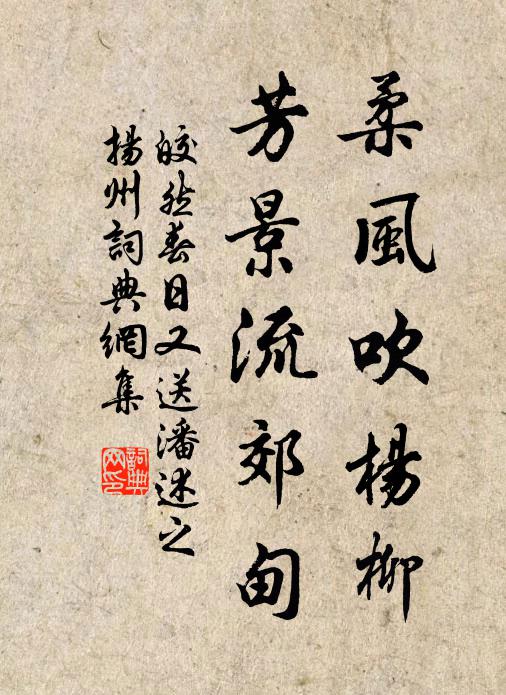 柔風吹楊柳
芳景流郊甸
皎然春日又送潘述之
揚州詞典網集
詞典网印